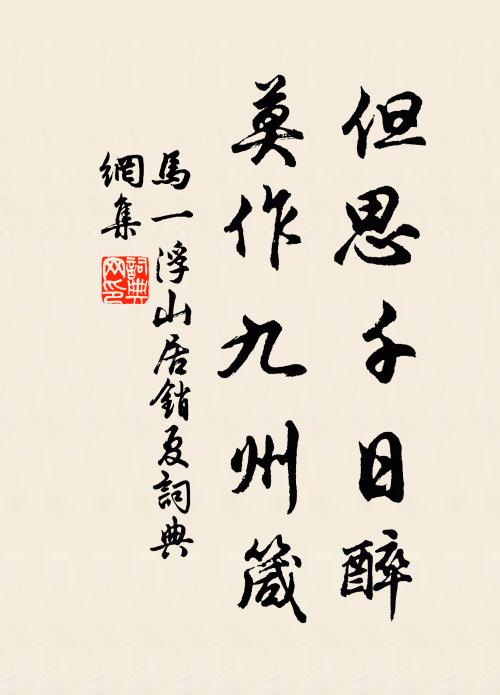 但思千日醉
莫作九州箴
馬一浮山居銷夏詞典
網集
詞典網印